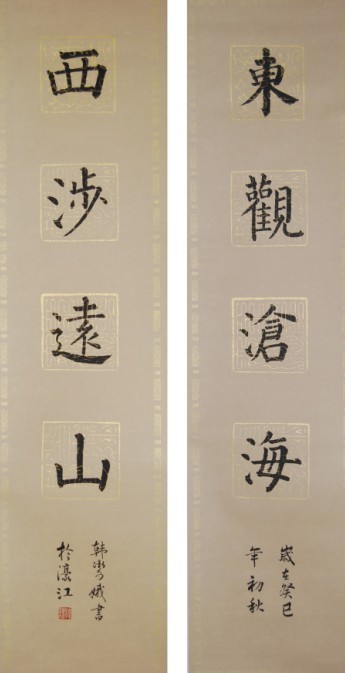 東觀滄海
歲在癸巳
年初秋
西涉遠山
書
於濠江